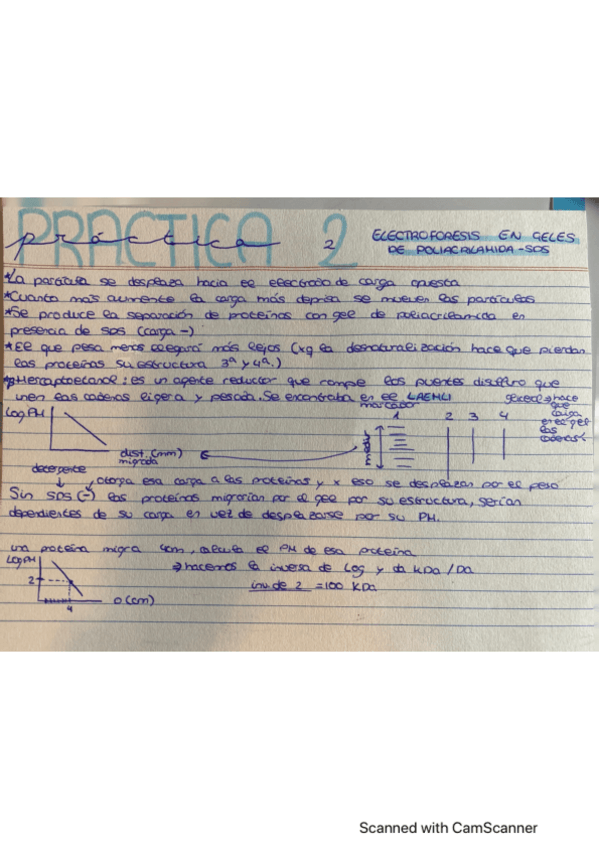 PRACTICA 2
práctica 2
ELECTROFORESIS EN GELES
DE POLIACRILAMIDA-SDS
*La partícula se desplaza hacia el electrodo de carga opuesta
*Cuanto más aumente la carga más deprisa se mueven las partículas
*Se produce la separación de proteínas con gel de poliacrilamida en
presencia de SDS (carga -)
*El que pesa menos llegará más lejos (xq la desnaturalización hace que pierdan
las proteínas su estructura 3ª y 4ª.)
*βMercaptoetanol: es un agente reductor que rompe los puentes disulfuro que
unen las cadenas ligera y pesada. Se encontraba en el LAEMLI
Log PM
dist. (mm)
migrada
marcador
1 2 3 4
hace
que
caiga
en el gel
las
detergente
otorga esa carga a las proteínas y x eso se desplazan por el peso
Sin SDS (-) las proteínas migrarían por el gel por su estructura, serían
dependientes de su carga en vez de desplazarse por su PM.
una proteína migra 4cm, calcula el PM de esa proteína
Log PM
→ hacemos la inversa de Log y da kDa / Da
2
inv. de 2 = 100 kDa
4
D (cm)
Scanned with CamScanner